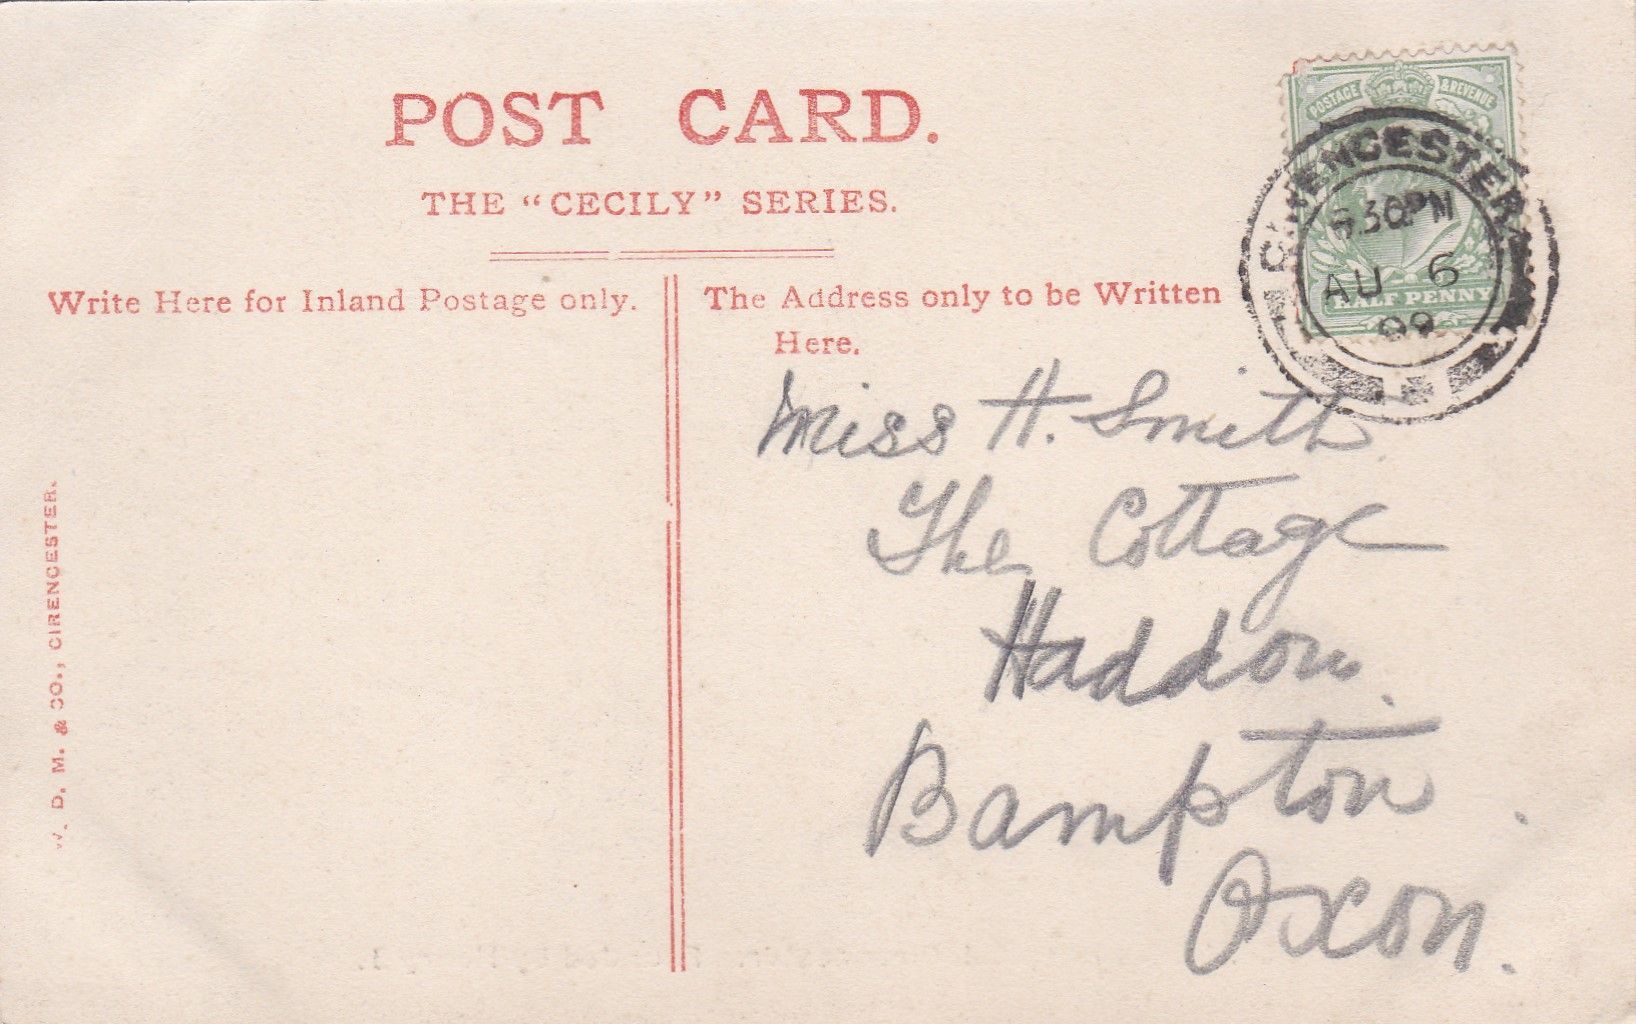 POST CARD.
THE "CECILY" SERIES.
Write Here for Inland Postage only.
The Address only to be Written
Here.
W. D. M. & CO., CIRENCESTER.
POSTAGE & REVENUE
HALF PENNY
CIRENCESTER
5.30PM
AU 6
09
Miss H. Smith
The Cottage
Haddon.
Bampton.
Oxon.